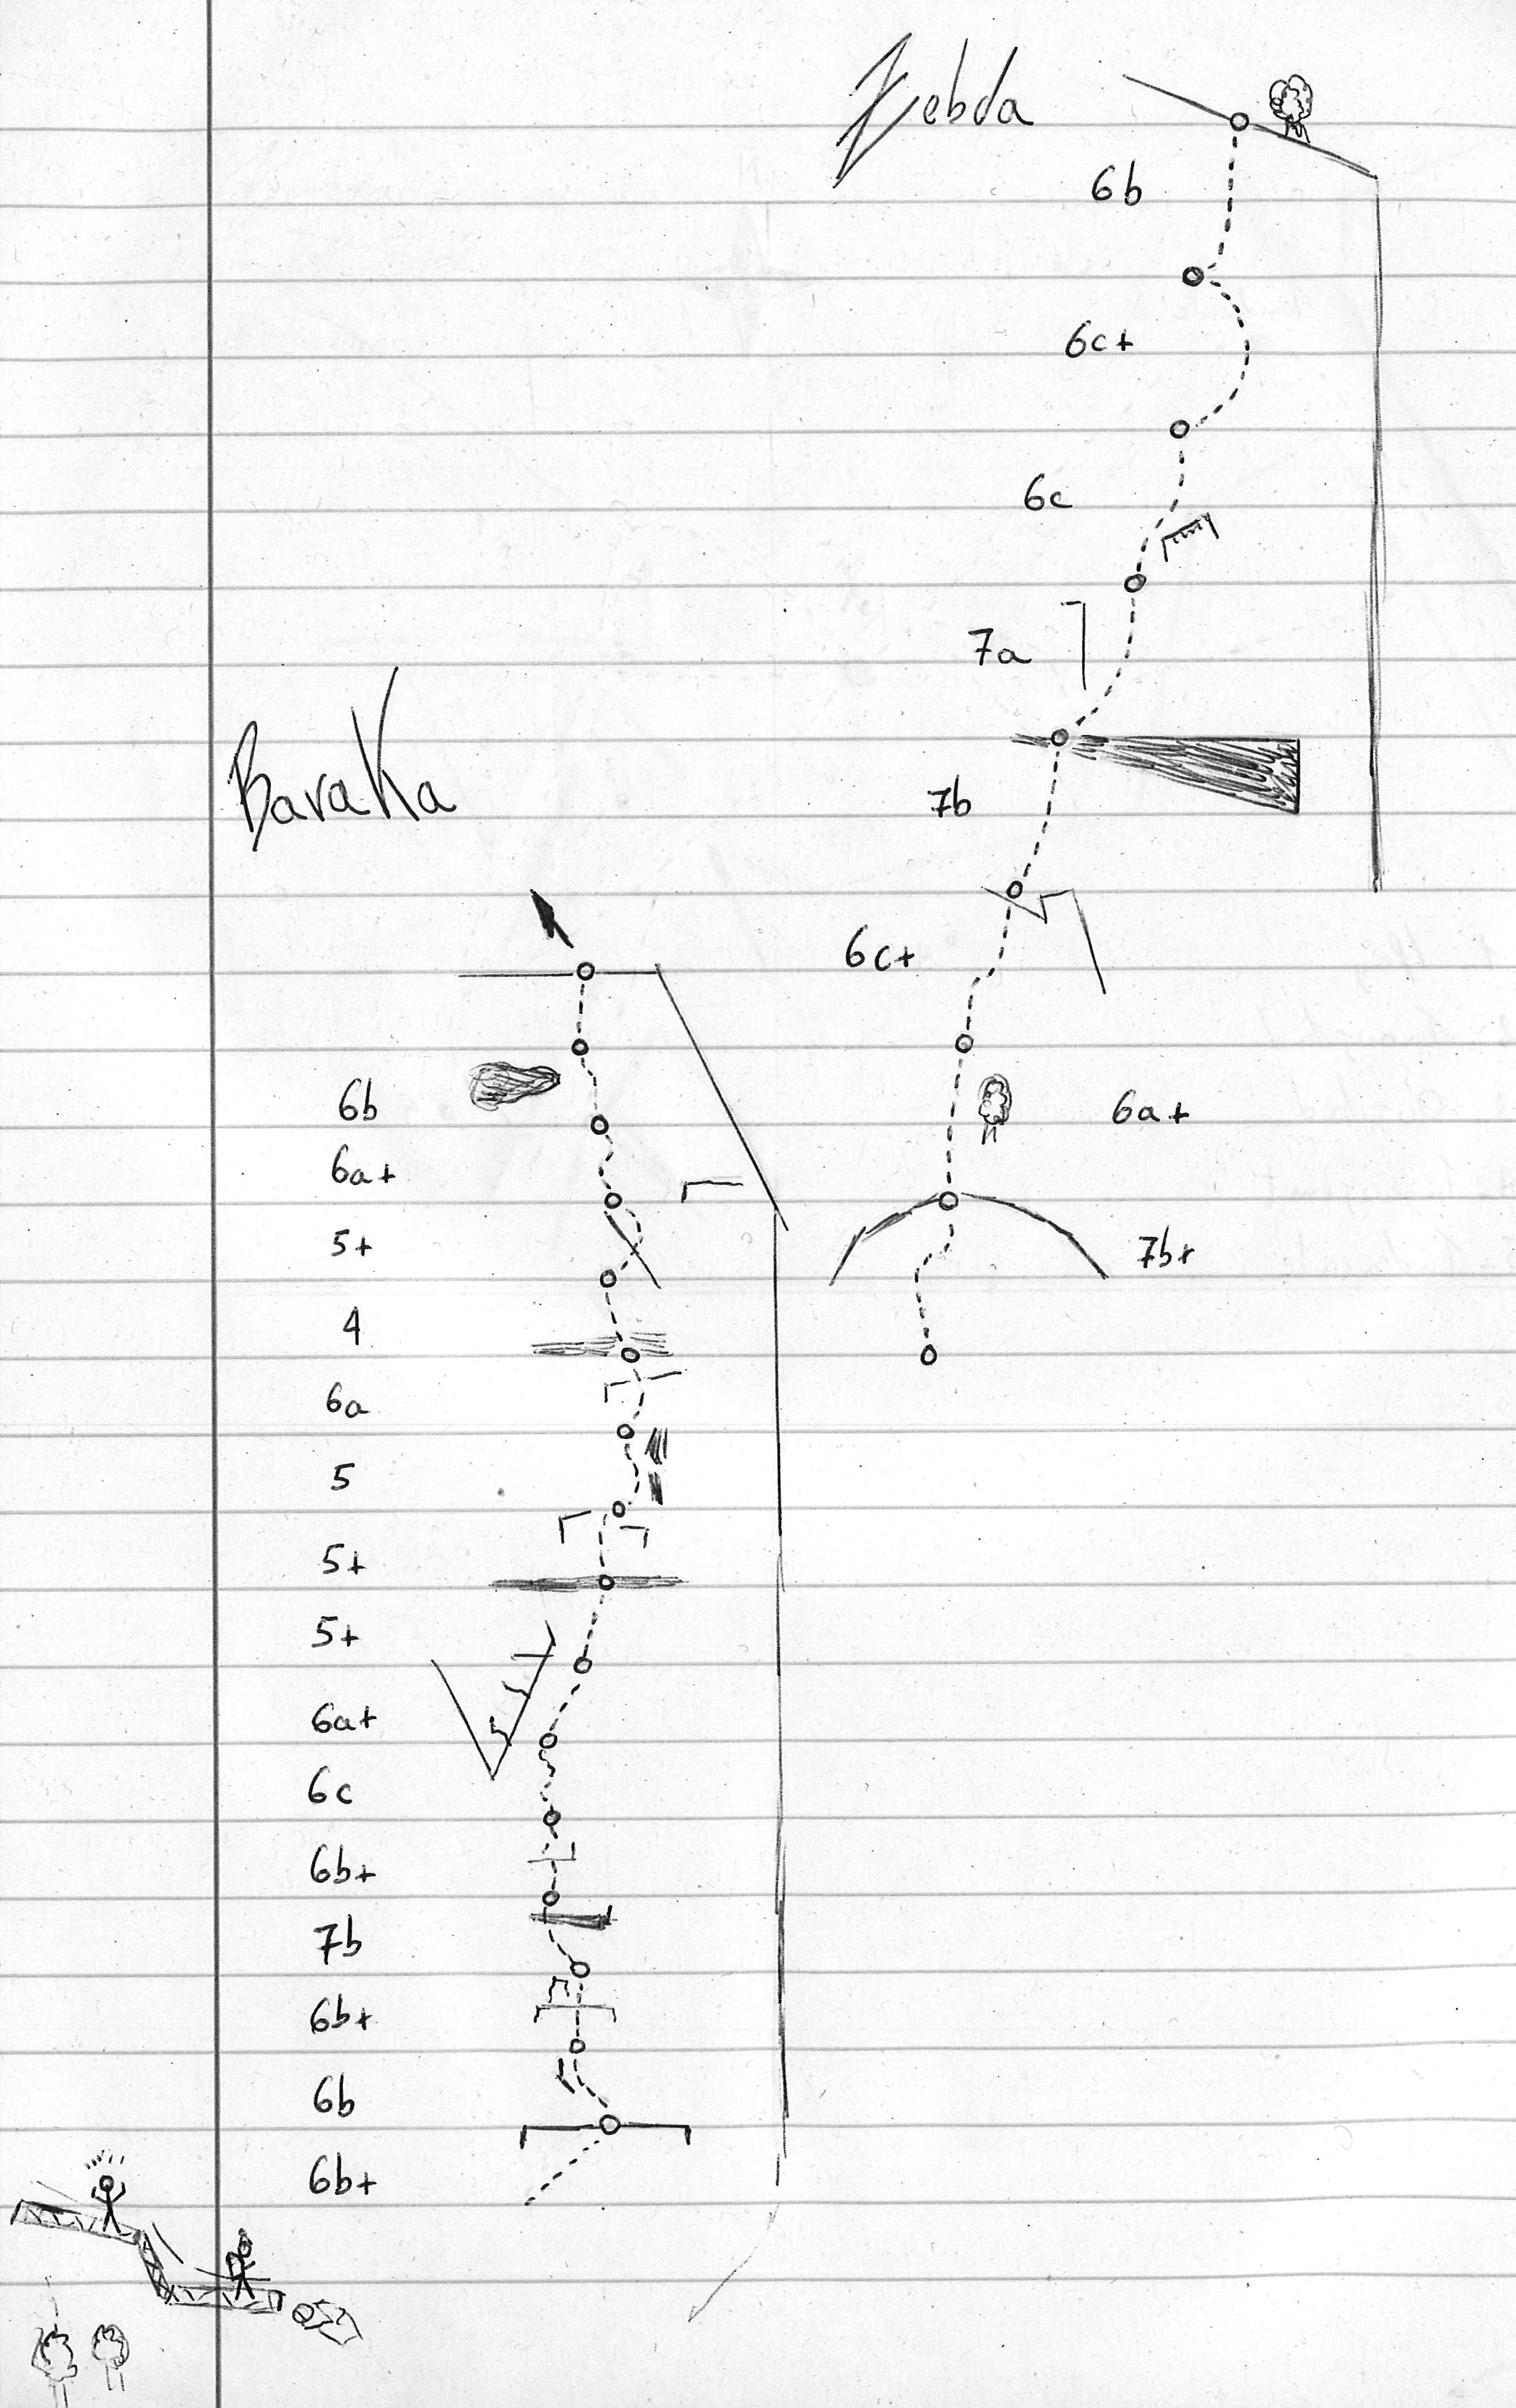 Zebda
6b
6c+
6c
7a
7b
6c+
6a+
7b+
Baraka
6b
6a+
5+
4
6a
5
5+
5+
6a+
6c
6b+
7b
6b+
6b
6b+